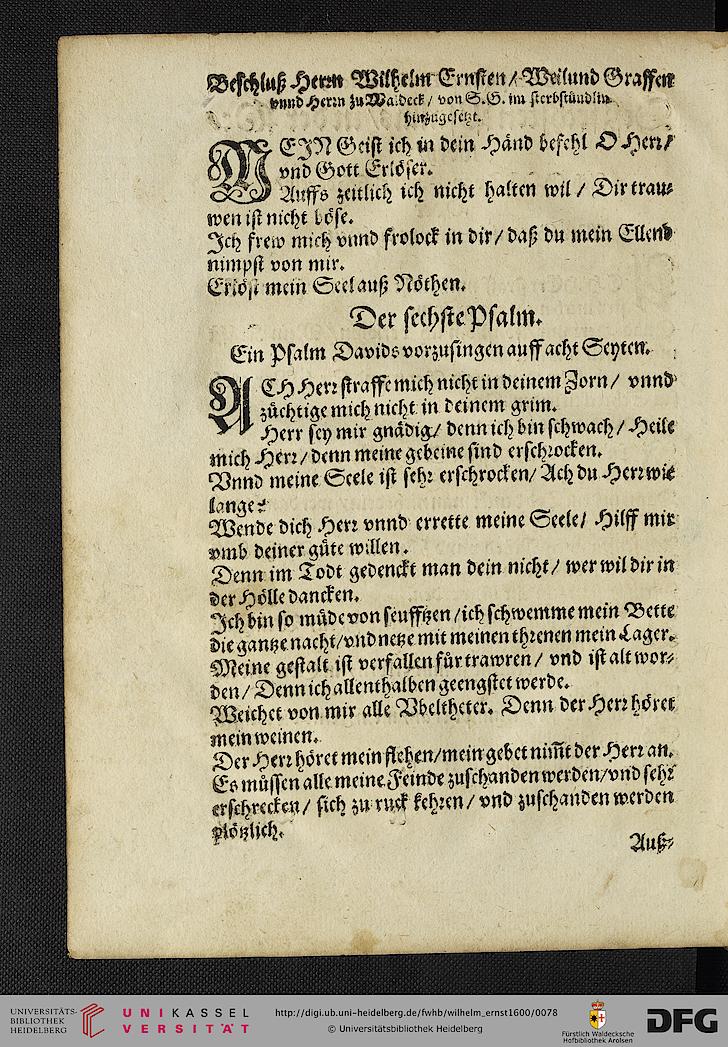 Beschluß Herrn Wilhelm Ernsten / Weilund Graffen
vnnd Herrn zu Waldeck / von S.G. im sterbstündlin
hinzugesetzt.
MEIN Geist ich in dein Händ befehl O Herr /
vnd Gott Erlöser.
Auffs zeitlich ich nicht halten wil / Dir trau-
wen ist nicht böse.
Ich frew mich vnnd frolock in dir / daß du mein Ellend
nimpst von mir.
Erlöst mein Seel auß Nöthen.
Der sechste Psalm.
Ein Psalm Davids vorzusingen auff acht Seyten.
ACH Herr straffe mich nicht in deinem Zorn / vnnd
züchtige mich nicht in deinem grim.
Herr sey mir gnädig / denn ich bin schwach / Heile
mich Herr / denn meine gebeine sind erschrocken.
Vnnd meine Seele ist sehr erschrocken / Ach du Herr wie
lange?
Wende dich Herr vnnd errette meine Seele / Hilff mir
vmb deiner güte willen.
Denn im Todt gedenckt man dein nicht / wer wil dir in
der Hölle dancken.
Ich bin so müde von seufftzen / ich schwemme mein Bette
die gantze nacht / vnd netze mit meinen threnen mein Lager.
Meine gestalt ist verfallen für trawren / vnd ist alt wor-
den / Denn ich allenthalben geengstet werde.
Weichet von mir alle Vbeltheter. Denn der Herr höret
mein weinen.
Der Herr höret mein flehen / mein gebet nim̃t der Herr an.
Es müssen alle meine Feinde zuschanden werden / vnd sehr
erschrecken / sich zu ruck kehren / vnd zuschanden werden
plötzlich.
Auß-
UNIVERSITÄTS-
BIBLIOTHEK
HEIDELBERG
UNIKASSEL
VERSITÄT
http://digi.ub.uni-heidelberg.de/fwhb/wilhelm_ernst1600/0078
© Universitätsbibliothek Heidelberg
Fürstlich Waldecksche
Hofbibliothek Arolsen
DFG